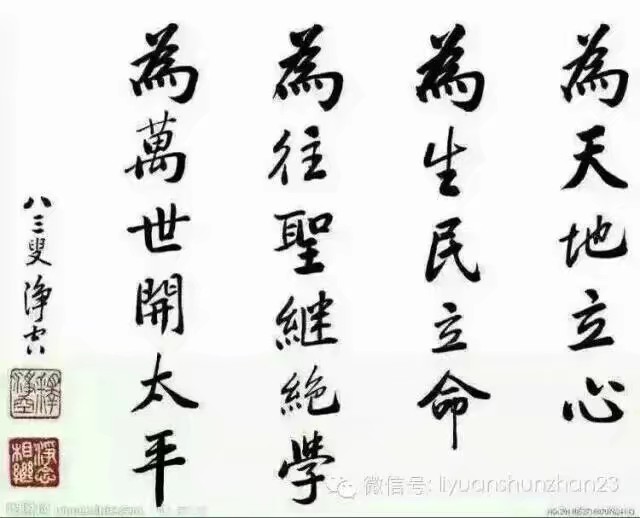 為天地立心
為生民立命
為往聖繼絕學
為萬世開太平
八三叟淨空
釋淨空
淨念相繼
微信号: liyuanshunzhan23